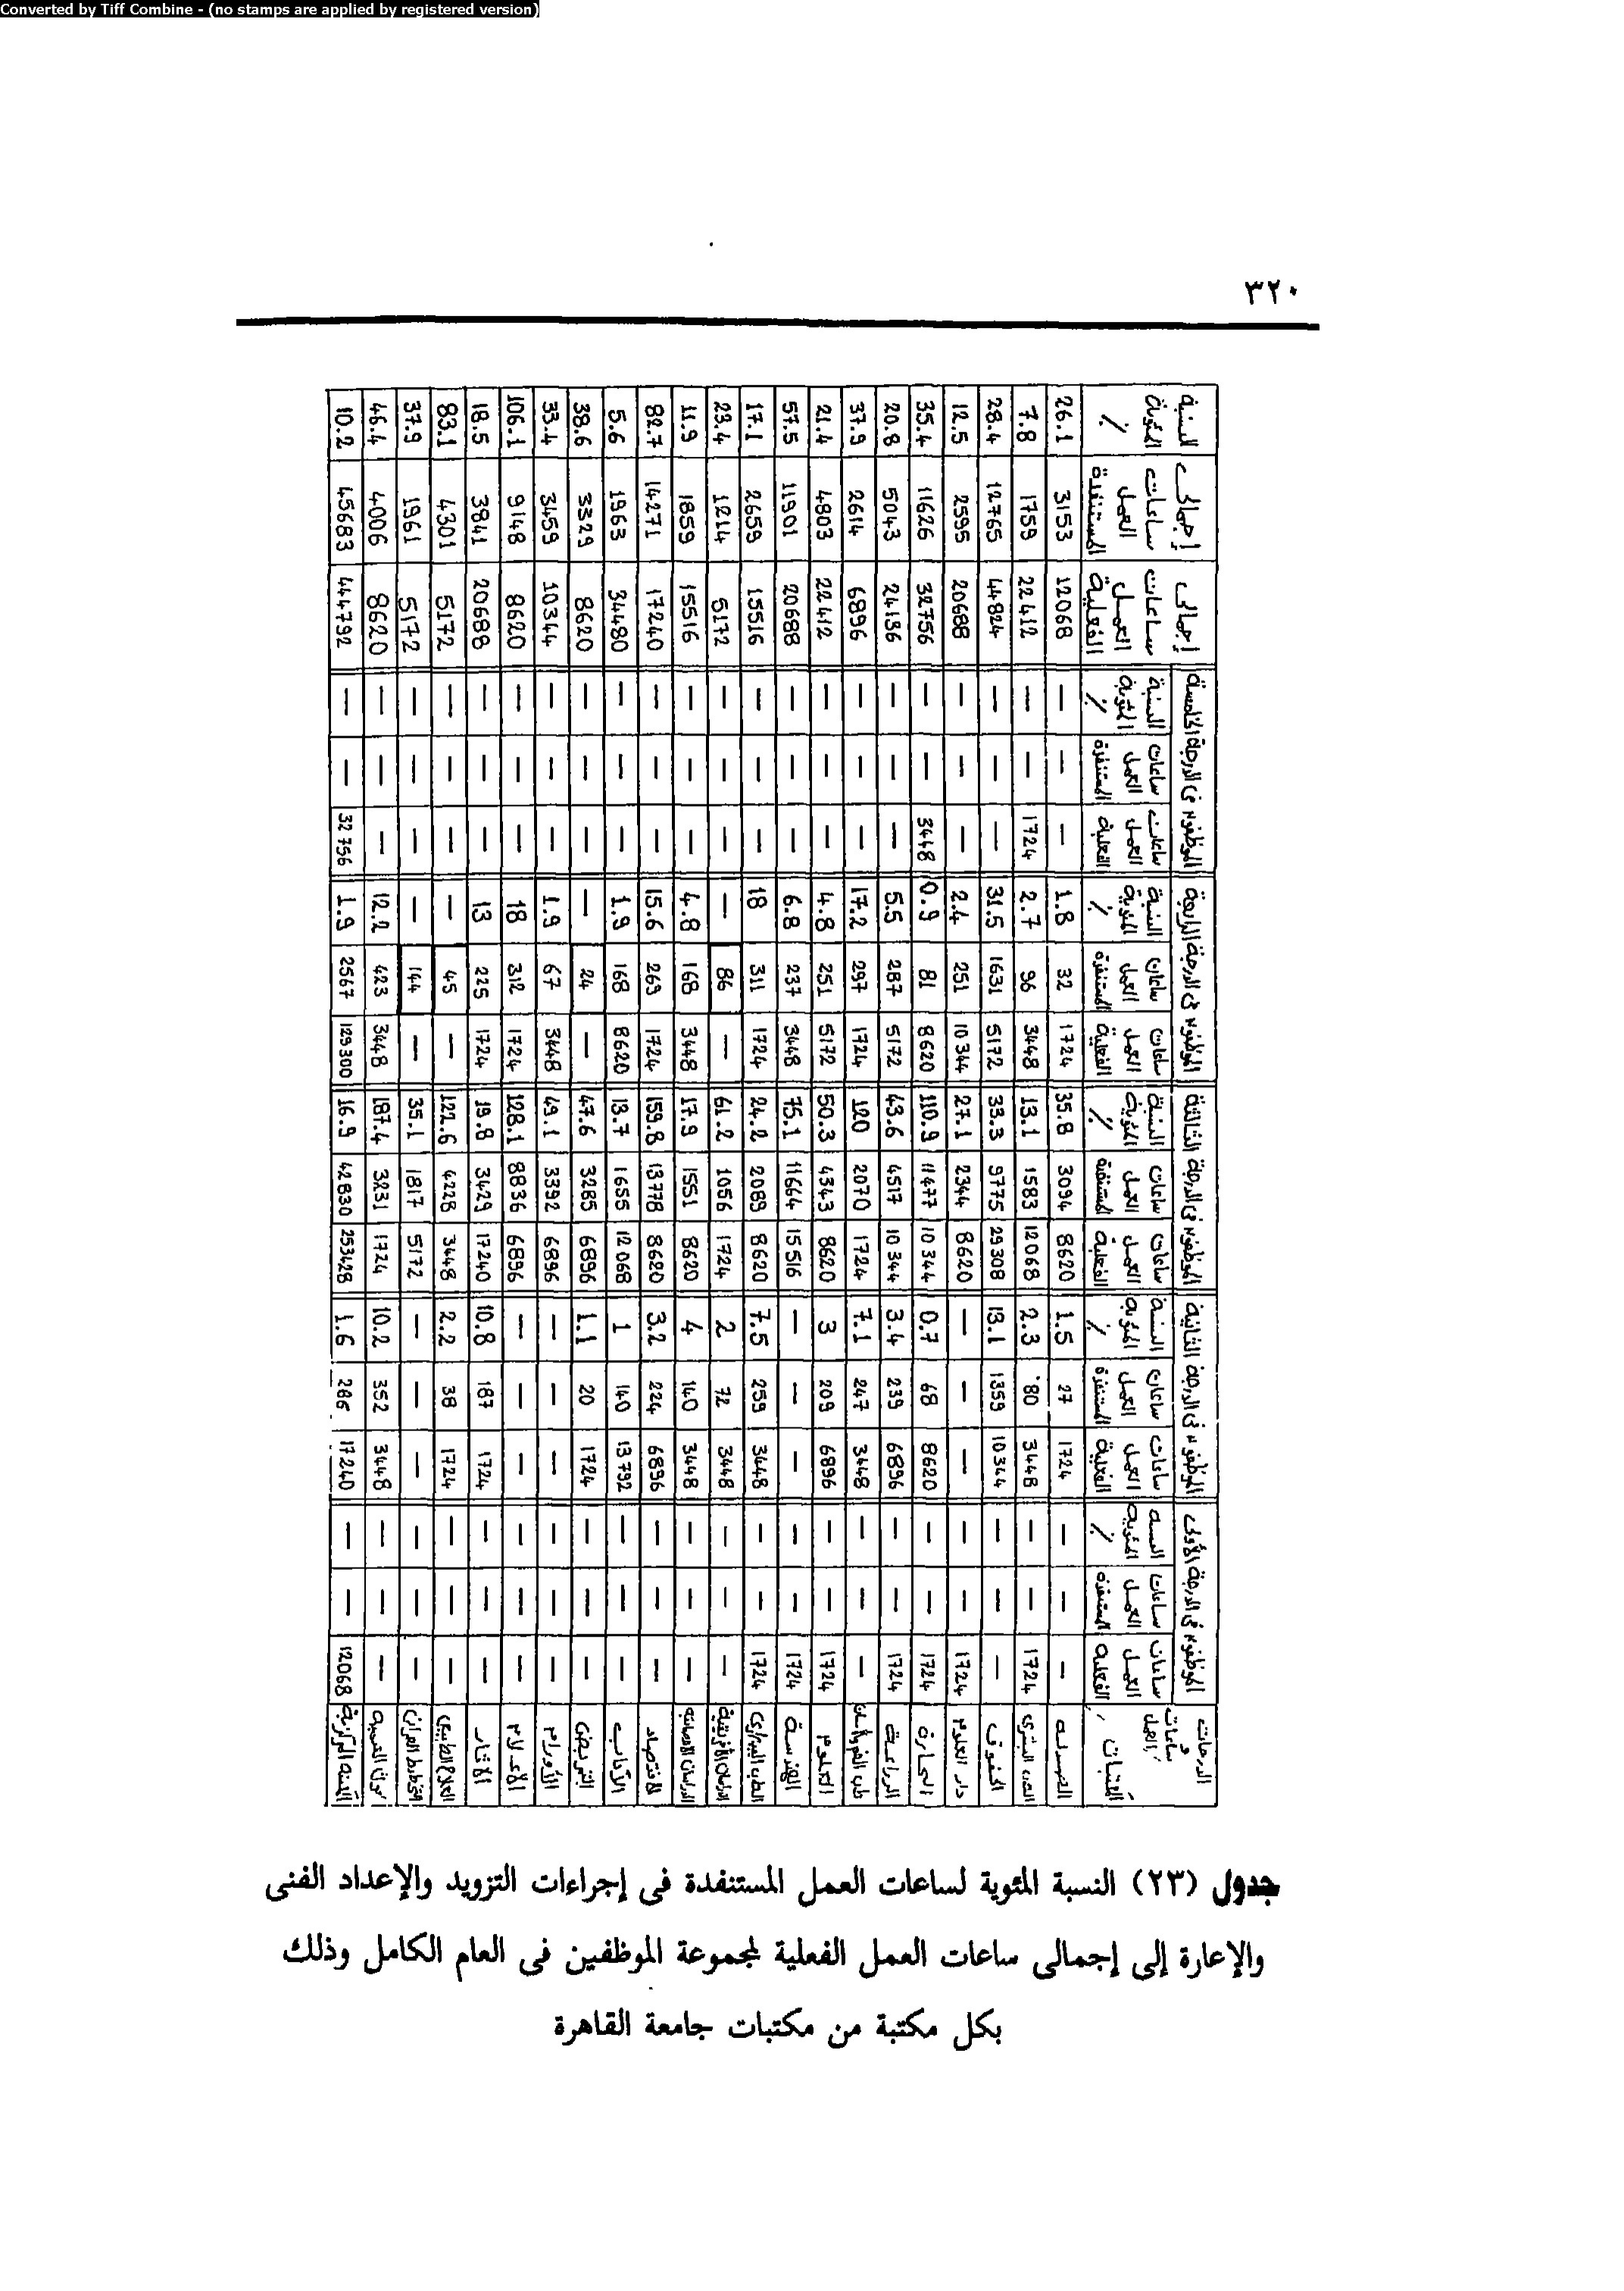 Converted by Tiff Combine - (no stamps are applied by registered version)
٣٢٠
الدرجات و ساعات العمل المكتبات
الموظفون فى الدرجة الأولى الموظفون فى الدرجة الثانية الموظفون فى الدرجة الثالثة الموظفون فى الدرجة الرابعة الموظفون فى الدرجة الخامسة إجمالى ساعات العمل الفعلية إجمالى ساعات العمل المستنفدة النسبة المئوية %
ساعات العمل الفعلية ساعات العمل المستنفدة النسبة المئوية % ساعات العمل الفعلية ساعات العمل المستنفدة النسبة المئوية % ساعات العمل الفعلية ساعات العمل المستنفدة النسبة المئوية % ساعات العمل الفعلية ساعات العمل المستنفدة النسبة المئوية % ساعات العمل الفعلية ساعات العمل المستنفدة النسبة المئوية %
الصيدلة — — — 1724 27 1.5 8620 3094 35.8 1724 32 1.8 — — — 12068 3153 26.1
الطب البيطرى 1724 — — 3448 80 2.3 12068 1583 13.1 3448 96 2.7 1724 — — 22412 1759 7.8
الحقوق — — — 10344 1359 13.1 29308 9775 33.3 5172 1631 31.5 — — — 44824 12765 28.4
دار العلوم 1724 — — — — — 8620 2344 27.1 10344 251 2.4 — — — 20688 2595 12.5
التجارة 1724 — — 8620 68 0.7 10344 11477 110.9 8620 81 0.9 3448 — — 32756 11626 35.4
الزراعة 1724 — — 6896 239 3.4 10344 4517 43.6 5172 287 5.5 — — — 24136 5043 20.8
طب الفم والأسنان — — — 3448 247 7.1 1724 2070 120 1724 297 17.2 — — — 6896 2614 37.9
العلوم 1724 — — 6896 209 3 8620 4343 50.3 5172 251 4.8 — — — 22412 4803 21.4
الهندسة 1724 — — — — — 15516 11664 75.1 3448 237 6.8 — — — 20688 11901 57.5
1724 — — 3448 259 7.5 8620 2089 24.2 1724 311 18 — — — 15516 2659 17.1
الدراسات الأفريقية — — — 3448 72 2 1724 1056 61.2 — 86 — — — — 5172 1214 23.4
الدراسات الاحصائية — — — 3448 140 4 8620 1551 17.9 3448 168 4.8 — — — 15516 1859 11.9
الاقتصاد — — — 6896 224 3.2 8620 13778 159.8 1724 269 15.6 — — — 17240 14271 82.7
الآداب — — — 13792 140 1 12068 1655 13.7 8620 168 1.9 — — — 34480 1963 5.6
التمريض — — — 1724 20 1.1 6896 3285 47.6 — 24 — — — — 8620 3329 38.6
الأورام — — — — — — 6896 3392 49.1 3448 67 1.9 — — — 10344 3459 33.4
الاعلام — — — — — — 6896 8836 128.1 1724 312 18 — — — 8620 9148 106.1
الآثار — — — 1724 187 10.8 17240 3429 19.8 1724 225 13 — — — 20688 3841 18.5
العلاج الطبيعى — — — 1724 38 2.2 3448 4228 122.6 — 45 — — — — 5172 4301 83.1
— — — — — — 5172 1817 35.1 — 144 — — — — 5172 1961 37.9
— — — 3448 352 10.2 1724 3231 187.4 3448 423 12.2 — — — 8620 4006 46.4
المكتبة المركزية 12068 — — 17240 286 1.6 253428 42830 16.9 129300 2567 1.9 32756 — — 444792 45683 10.2
جدول (٢٣) النسبة المئوية لساعات العمل المستنفدة فى إجراءات التزويد والإعداد الفنى
والإعارة إلى إجمالى ساعات العمل الفعلية لمجموعة الموظفين فى العام الكامل وذلك
بكل مكتبة من مكتبات جامعة القاهرة